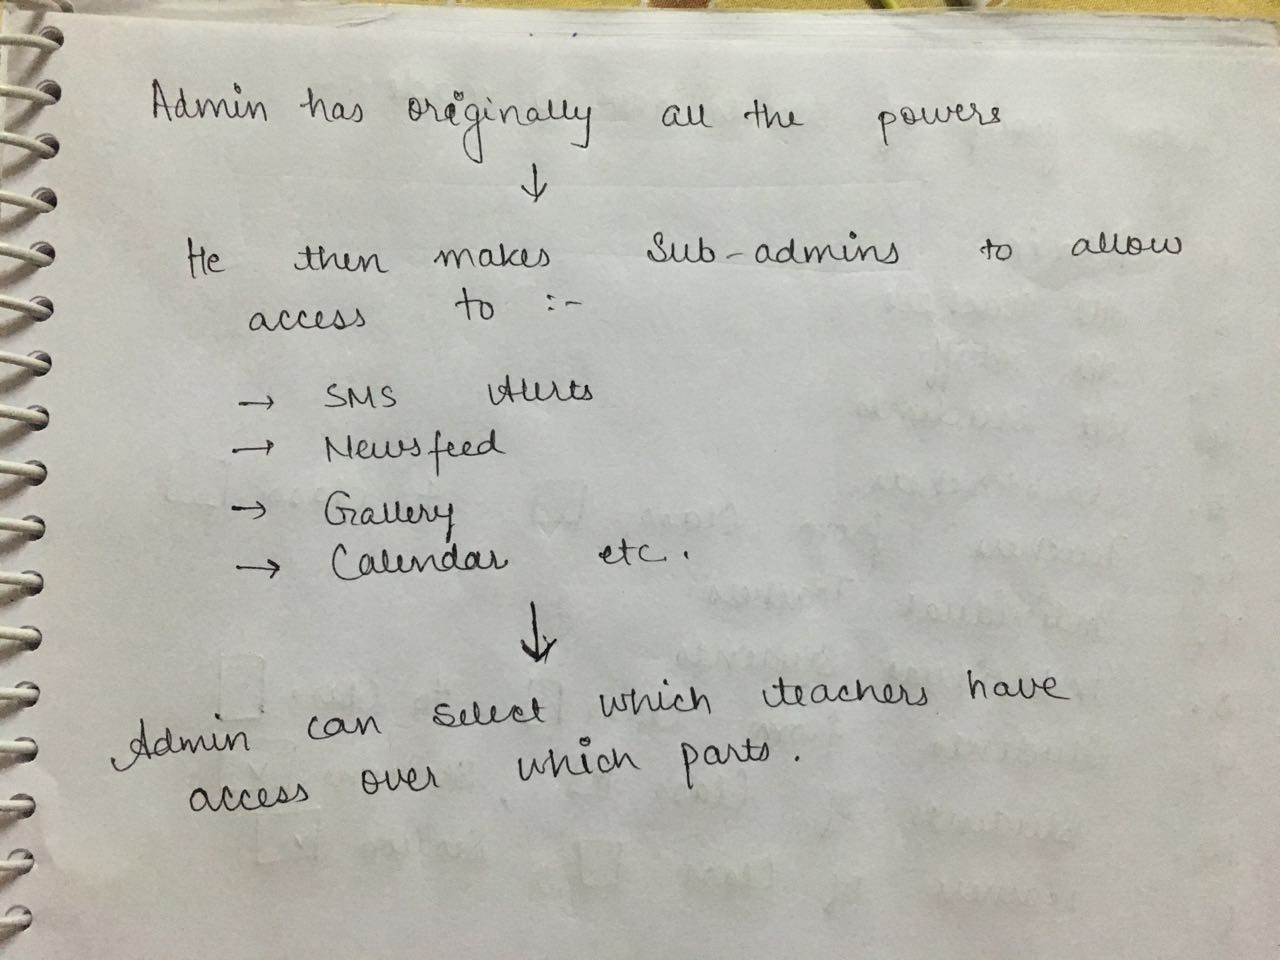 Admin has originally all the powers
↓
He then makes Sub-admins to allow
access to :-
→ SMS Alerts
→ Newsfeed
→ Gallery
→ Calendar etc.
↓
Admin can select which teachers have
access over which parts.